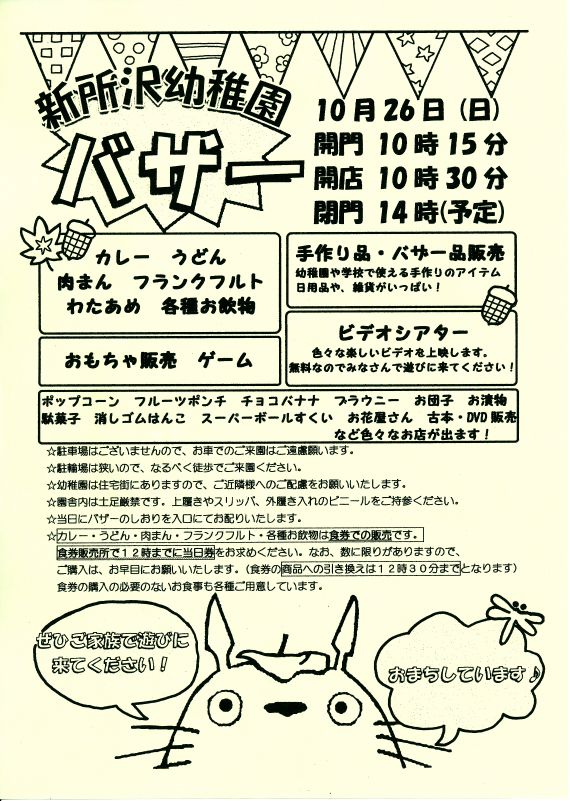 新所沢幼稚園
バザー
10月26日(日)
開門 10時15分
開店 10時30分
閉門 14時(予定)
カレー うどん
肉まん フランクフルト
わたあめ 各種お飲物
手作り品・バザー品販売
幼稚園や学校で使える手作りのアイテム
日用品や、雑貨がいっぱい！
おもちゃ販売 ゲーム
ビデオシアター
色々な楽しいビデオを上映します。
無料なのでみなさんで遊びに来てください！
ポップコーン フルーツポンチ チョコバナナ ブラウニー お団子 お漬物
駄菓子 消しゴムはんこ スーパーボールすくい お花屋さん 古本・DVD販売
など色々なお店が出ます！
☆駐車場はございませんので、お車でのご来園はご遠慮願います。
☆駐輪場は狭いので、なるべく徒歩でご来園ください。
☆幼稚園は住宅街にありますので、ご近隣様へのご配慮をお願いいたします。
☆園舎内は土足厳禁です。上履きやスリッパ、外履き入れのビニールをご持参ください。
☆当日にバザーのしおりを入口にてお配りいたします。
☆カレー・うどん・肉まん・フランクフルト・各種お飲物は食券での販売です。
食券販売所で12時までに当日券をお求めください。なお、数に限りがありますので、
ご購入は、お早目にお願いいたします。（食券の商品への引き換えは12時30分までとなります）
食券の購入の必要のないお食事も各種ご用意しています。
ぜひご家族で遊びに
来てください！
おまちしています♪